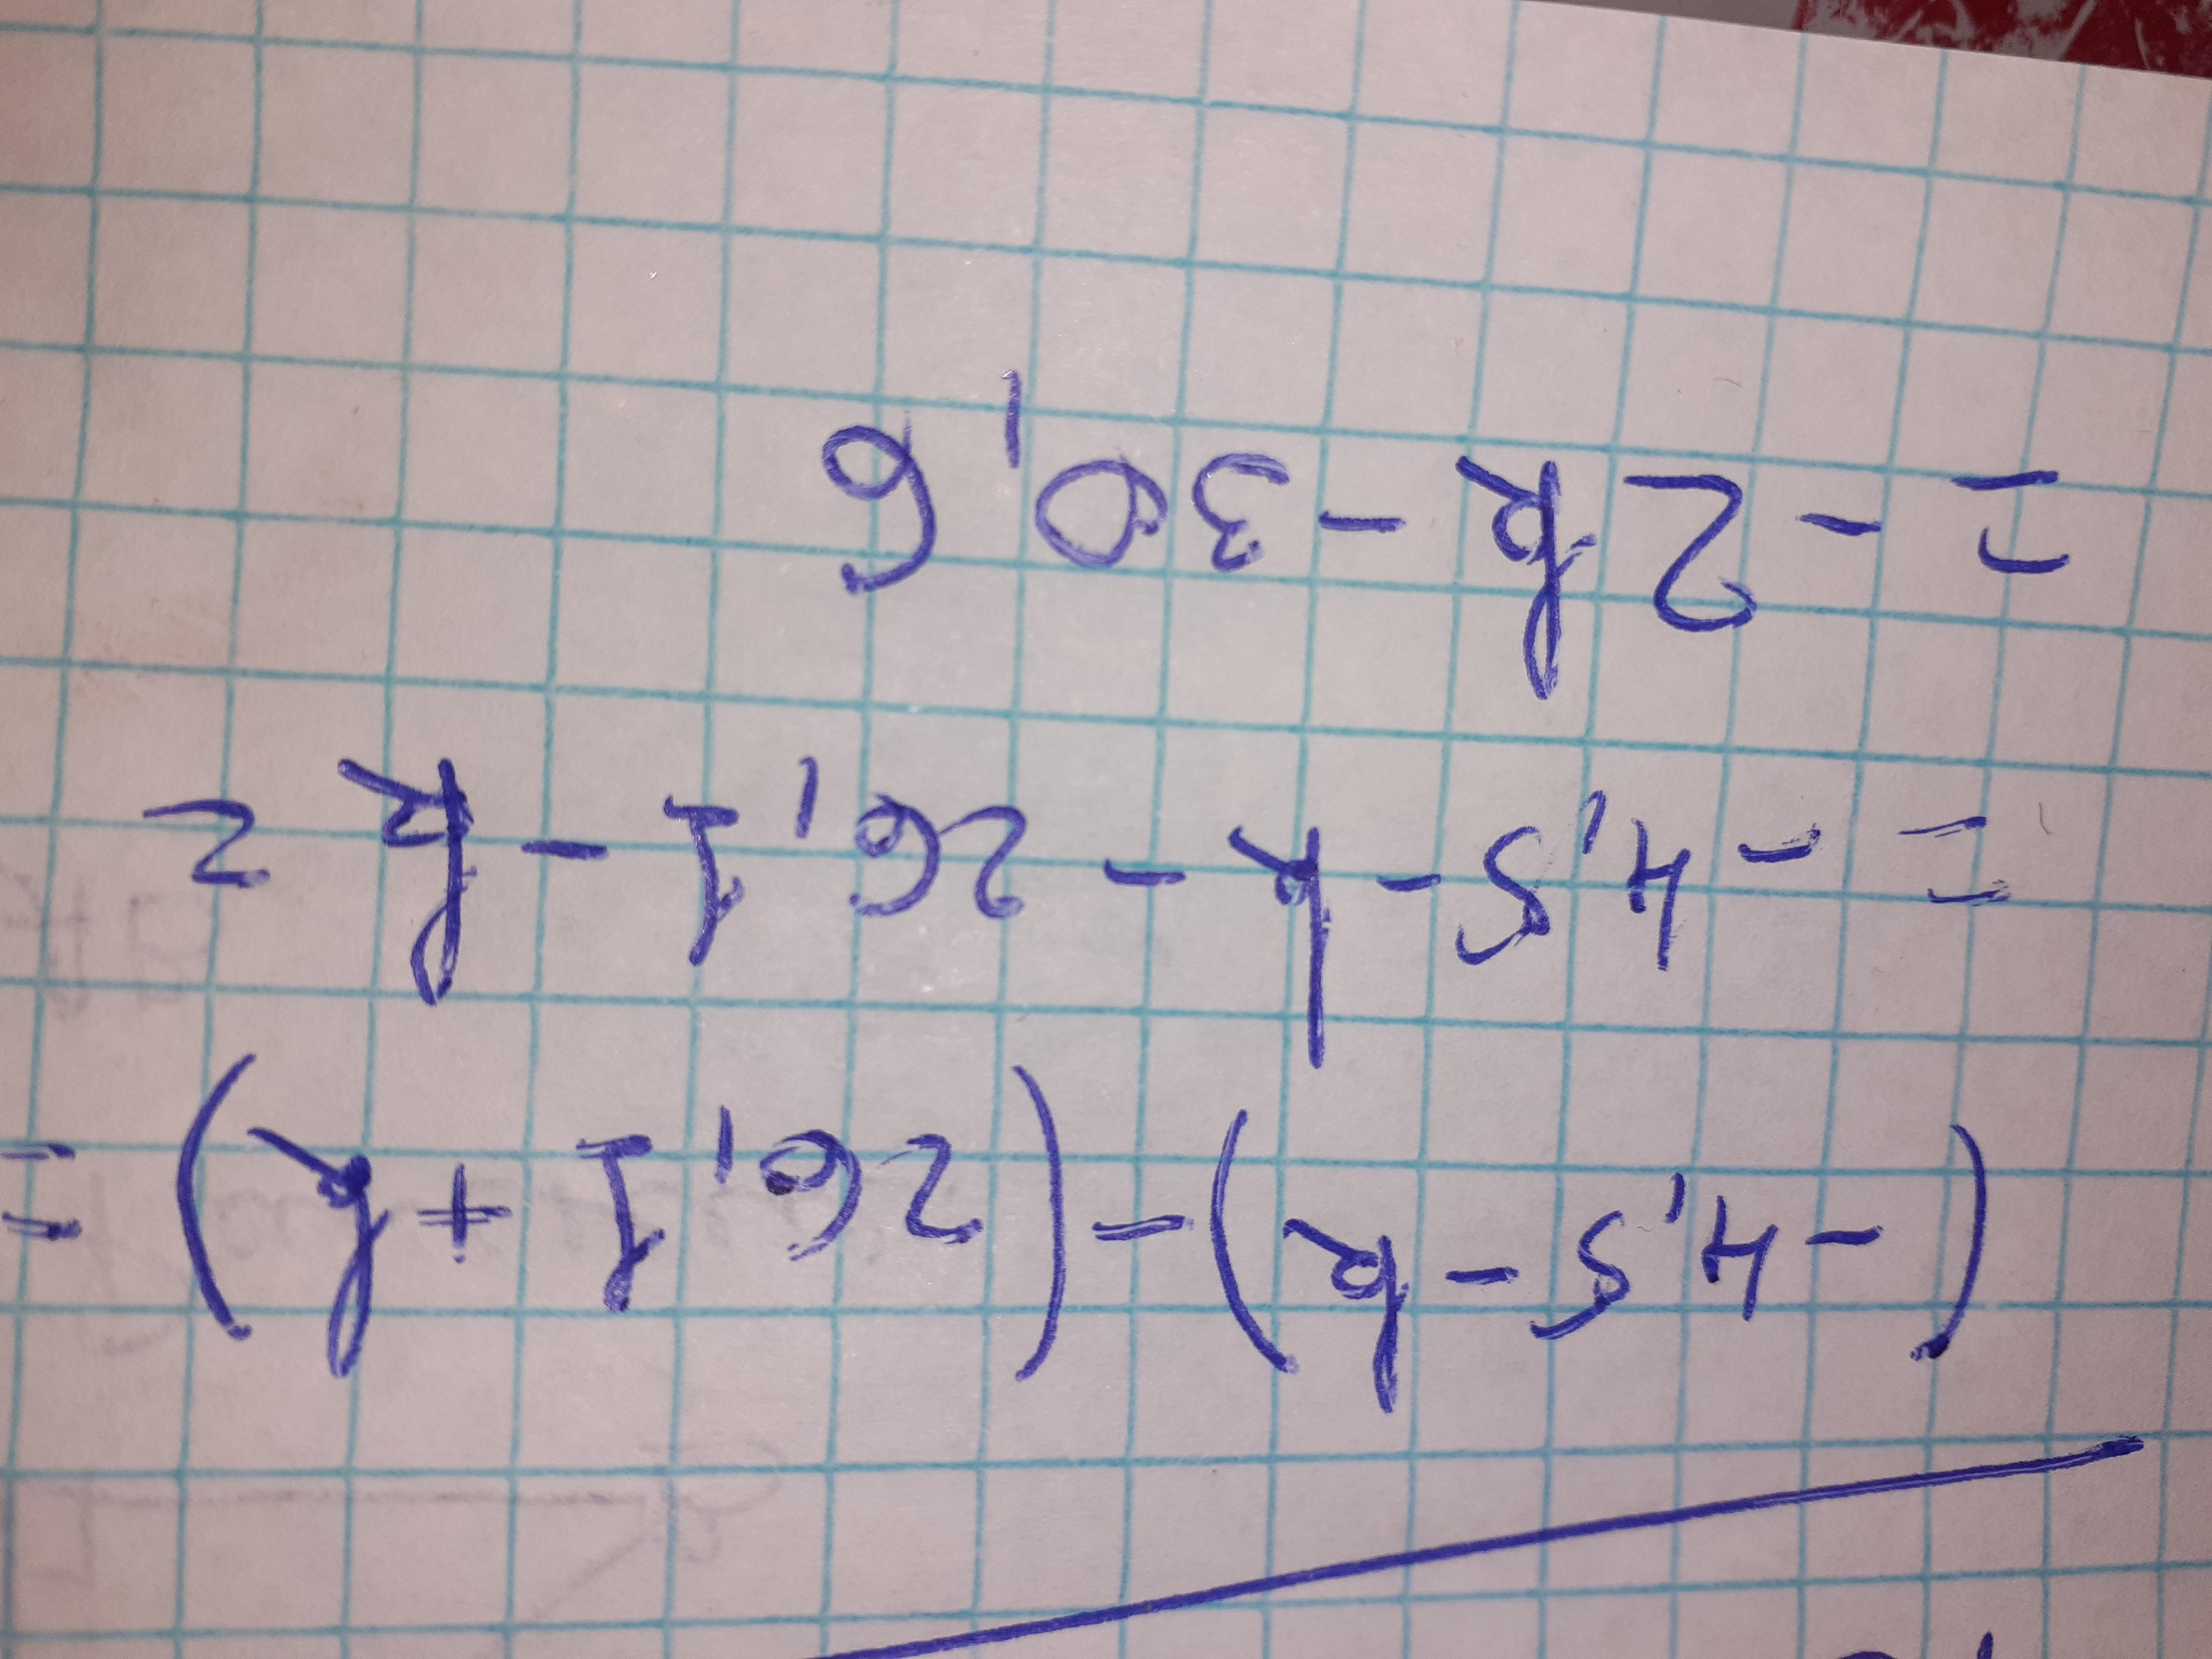 (-4,5-k)-(26,1+k)=
=-4,5-k-26,1-k=
=-2k-30,6